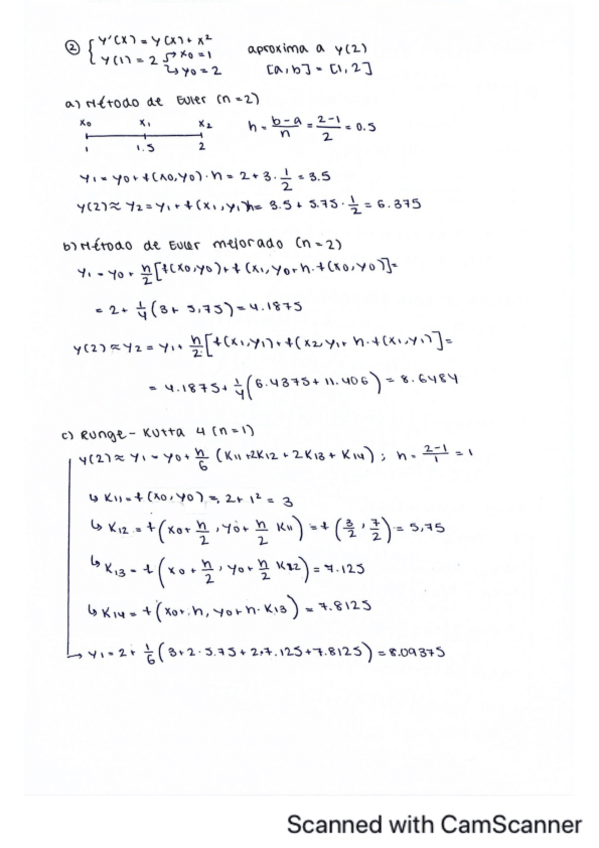 ② { y'(x) = y(x) + x²
y(1) = 2 → x₀ = 1
↳ y₀ = 2
aproxima a y(2)
[a,b] = [1,2]
a) Método de Euler (n=2)
x₀ x₁ x₂
1 1.5 2
h = b-a/n = 2-1/2 = 0.5
y₁ = y₀ + f(x₀,y₀)·h = 2+3·1/2 = 3.5
y(2) ≈ y₂ = y₁ + f(x₁,y₁)h = 3.5 + 5.75·1/2 = 6.375
b) Método de Euler mejorado (n=2)
y₁ = y₀ + h/2 [f(x₀,y₀) + f(x₁, y₀+h·f(x₀,y₀)] =
= 2 + 1/4 (3 + 5,75) = 4.1875
y(2) ≈ y₂ = y₁ + h/2 [f(x₁,y₁) + f(x₂ y₁+ h·f(x₁,y₁)] =
= 4.1875 + 1/4 (6.4375 + 11.406) = 8.6484
c) Runge-Kutta 4 (n=1)
y(2) ≈ y₁ = y₀ + h/6 (K₁₁ + 2K₁₂ + 2K₁₃ + K₁₄) ; h = 2-1/1 = 1
↳ K₁₁ = f(x₀,y₀) = 2+1² = 3
↳ K₁₂ = f(x₀+h/2, y₀+h/2 K₁₁) = f(3/2, 7/2) = 5,75
↳ K₁₃ = f(x₀+h/2, y₀+h/2 K₁₂) = 7.125
↳ K₁₄ = f(x₀+h, y₀+h·K₁₃) = 7.8125
→ y₁ = 2 + 1/6 (3+2·5.75+2·7.125+7.8125) = 8.09375
Scanned with CamScanner